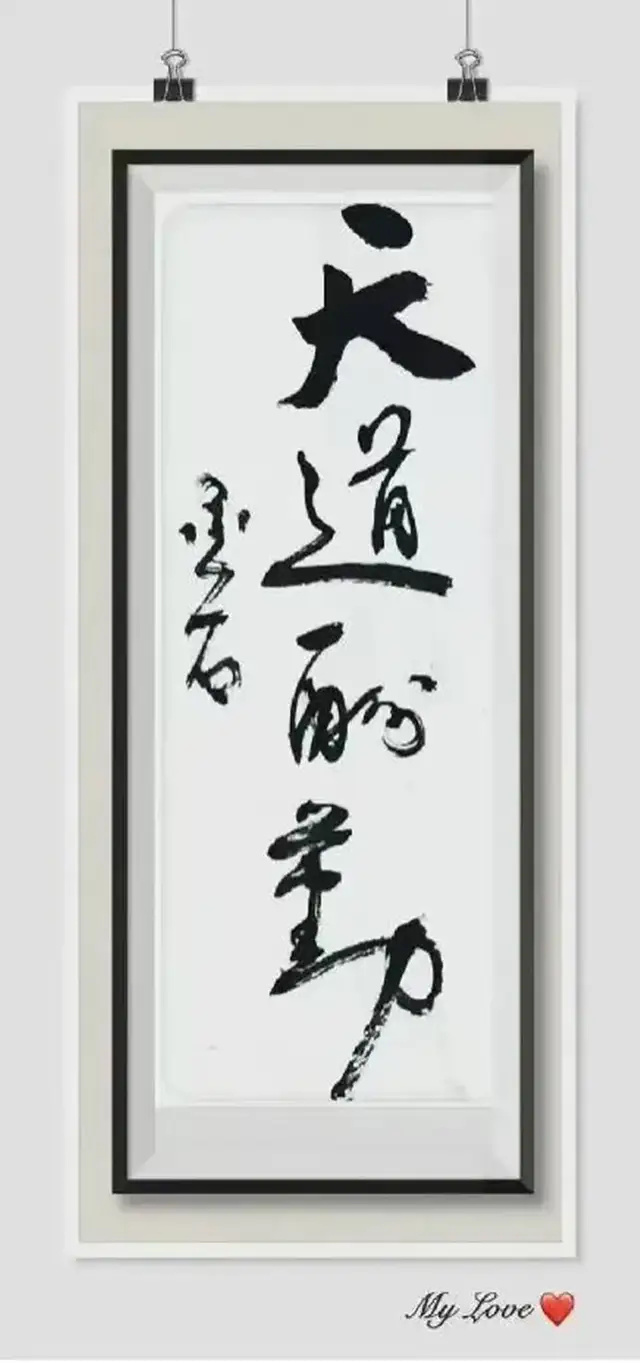 天道酬勤
墨石
My Love ❤️